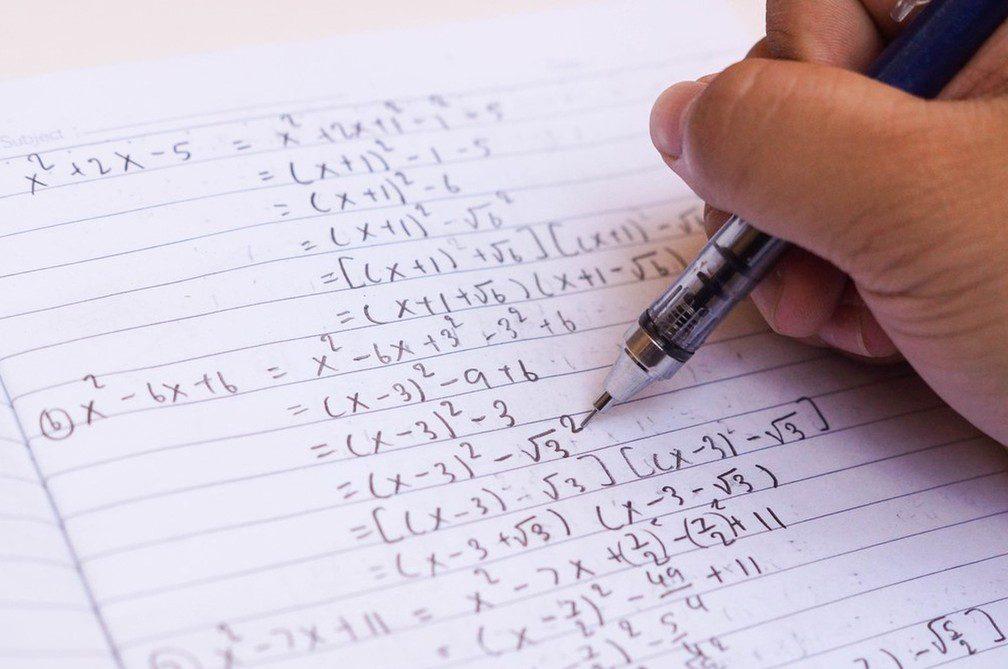 Subject :
x² + 2x - 5 = x² + 2x + 1² - 1² - 5
= (x+1)² - 1 - 5
= (x+1)² - 6
= (x+1)² - √6²
= [(x+1) + √6][(x+1) - √
= (x+1+√6)(x+1-√6)
(b) x² - 6x + 6 = x² - 6x + 3² - 3² + 6
= (x-3)² - 9 + 6
= (x-3)² - 3
= (x-3)² - √3²
= [(x-3) - √3][(x-3) - √3]
= (x-3+√3) (x-3-√3)
x² - 7x + 11 = x² - 7x + (7/2)² - (7/2)² + 11
= (x - 7/2)² - 49/4 + 11
7/2)² - 5/4
) - √5/2)]